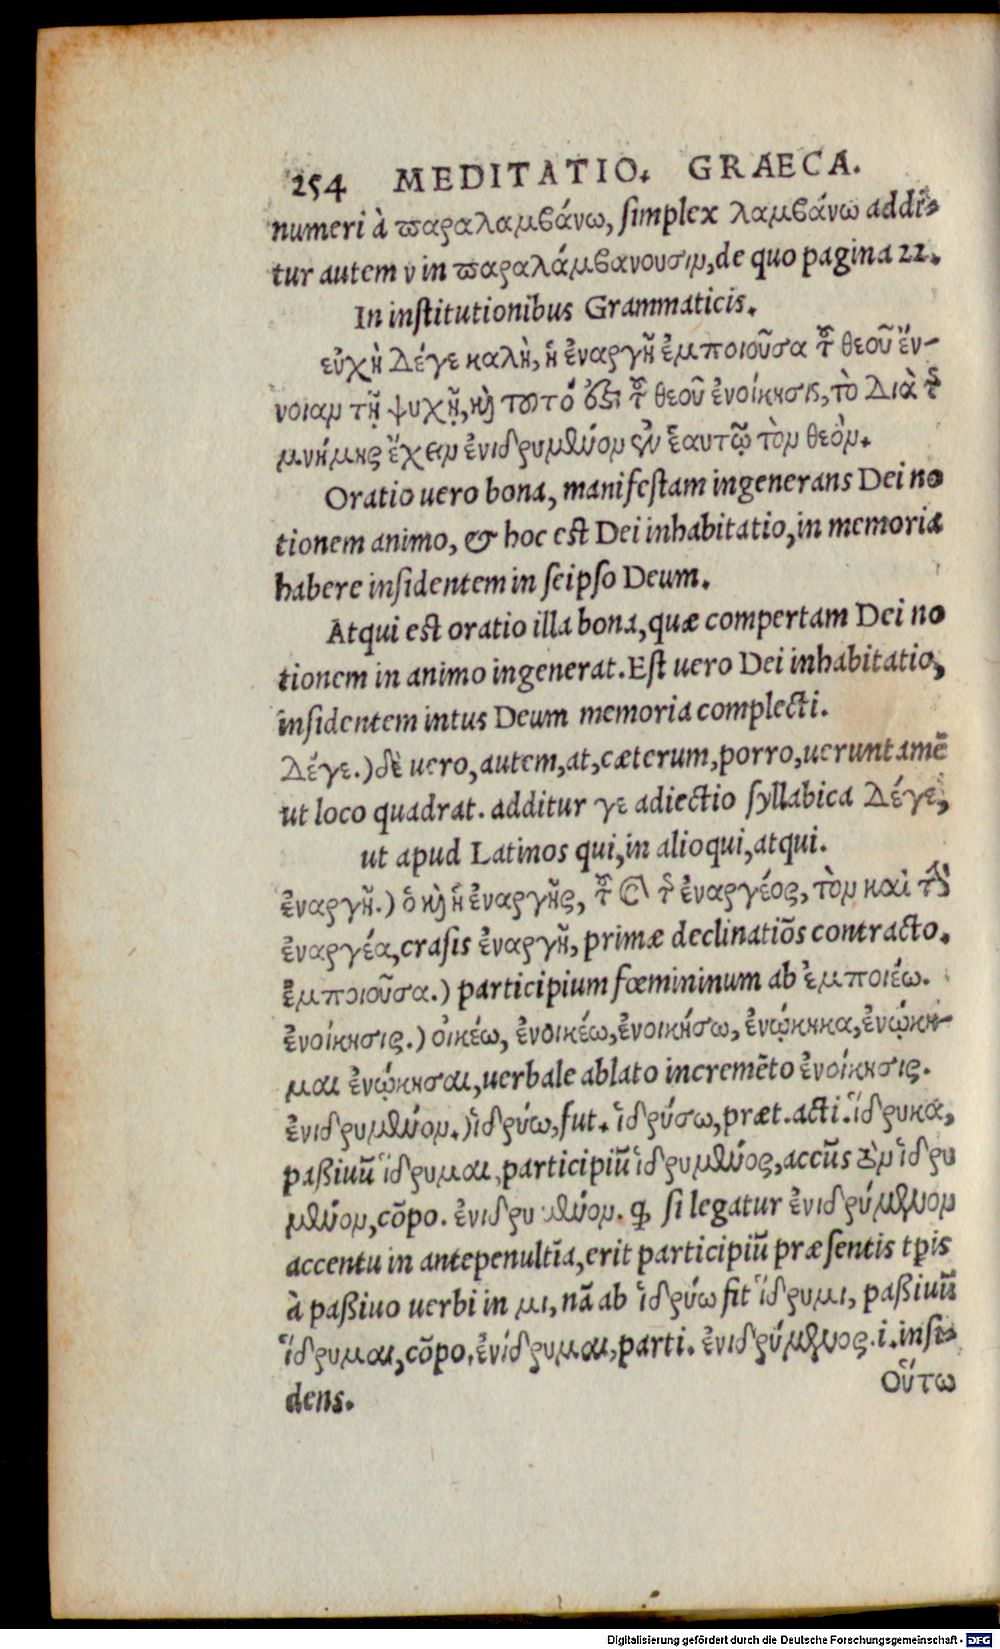 254 MEDITATIO. GRAECA.
numeri à παραλαμβάνω, simplex λαμβάνω addi-
tur autem ν in παραλάμβανουσιν, de quo pagina 22.
In institutionibus Grammaticis.
εὐχὴ δέγε καλὴ, ἡ ἐναργῆ ἐμποιοῦσα τοῦ θεοῦ ἔν-
νοιαν τῇ ψυχῇ, καὶ τουτό ἐστι τοῦ θεοῦ ἐνοίκησις, τὸ διὰ τῆς
μνήμης ἔχειν ἐνιδρυμένον ἐν ἑαυτῷ τὸν θεὸν.
Oratio uero bona, manifestam ingenerans Dei no
tionem animo, & hoc est Dei inhabitatio, in memoria
habere insidentem in seipso Deum.
Atqui est oratio illa bona, quæ compertam Dei no
tionem in animo ingenerat. Est uero Dei inhabitatio,
insidentem intus Deum memoria complecti.
Δέγε.) δὲ uero, autem, at, cæterum, porro, ueruntamē
ut loco quadrat. additur γε adiectio syllabica Δέγε,
ut apud Latinos qui, in alioqui, atqui.
ἐναργῆ.) ὁ καὶ ἡ ἐναργῆς, τοῦ καὶ τῆς ἐναργέος, τὸν καὶ τὴν
ἐναργέα, crasis ἐναργῆ, primæ declinatiōs contracto.
ἐμποιοῦσα.) participium fœmininum ab ἐμποιέω.
ἐνοίκησις.) οἰκέω, ἐνοικέω, ἐνοικήσω, ἐνῴκηκα, ἐνῴκη-
μαι ἐνῴκησαι, uerbale ablato incremēto ἐνοίκησις.
ἐνιδρυμένον.) ἱδρύω, fut. ἱδρύσω, præt. acti. ἵδρυκα,
paßiuū ἵδρυμαι, participiū ἱδρυμένος, accūs τὸν ἱδρυ
μένον, cōpo. ἐνιδρυμένον. ꝙ si legatur ἐνιδρύμενον
accentu in antepenultīa, erit participiū præsentis tp̄is
à paßiuo uerbi in μι, nā ab ἱδρύω fit ἵδρυμι, paßiuū
ἵδρυμαι, cōpo. ἐνίδρυμαι, parti. ἐνιδρύμενος .i. insi-
dens.
Οὕτω
Digitalisierung gefördert durch die Deutsche Forschungsgemeinschaft - DFG